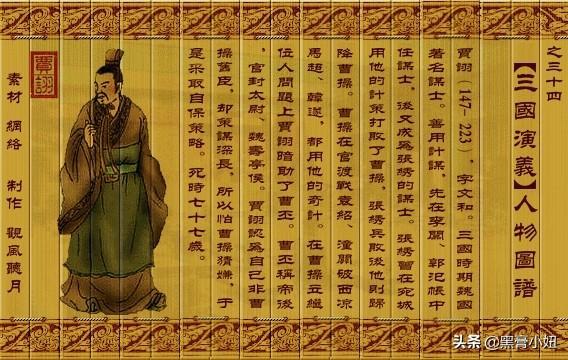 之三十四
【三國演義】人物圖譜
賈詡（147-223），字文和。三國時期魏國
著名謀士。善用計謀，先在李闕、郭汜帳中
任謀士，後又成爲張綉的謀士。張綉曾在宛城
用他的計策打敗了曹操，張綉兵敗後他則歸
降曹操。曹操在官渡戰袁紹、潼關破西凉
馬超、韓遂，都用他的奇計。在曹操立繼
位人問題上賈詡暗助了曹丕。曹丕稱帝後
，官封太尉、魏壽亭侯。賈詡認爲自己非曹
操舊臣，却策謀深長，所以怕曹操猜嫌，于
是采取自保策略。死時七十七歲。
賈詡
素材 網絡 制作 觀風聽月
头条 @黑骨小妞